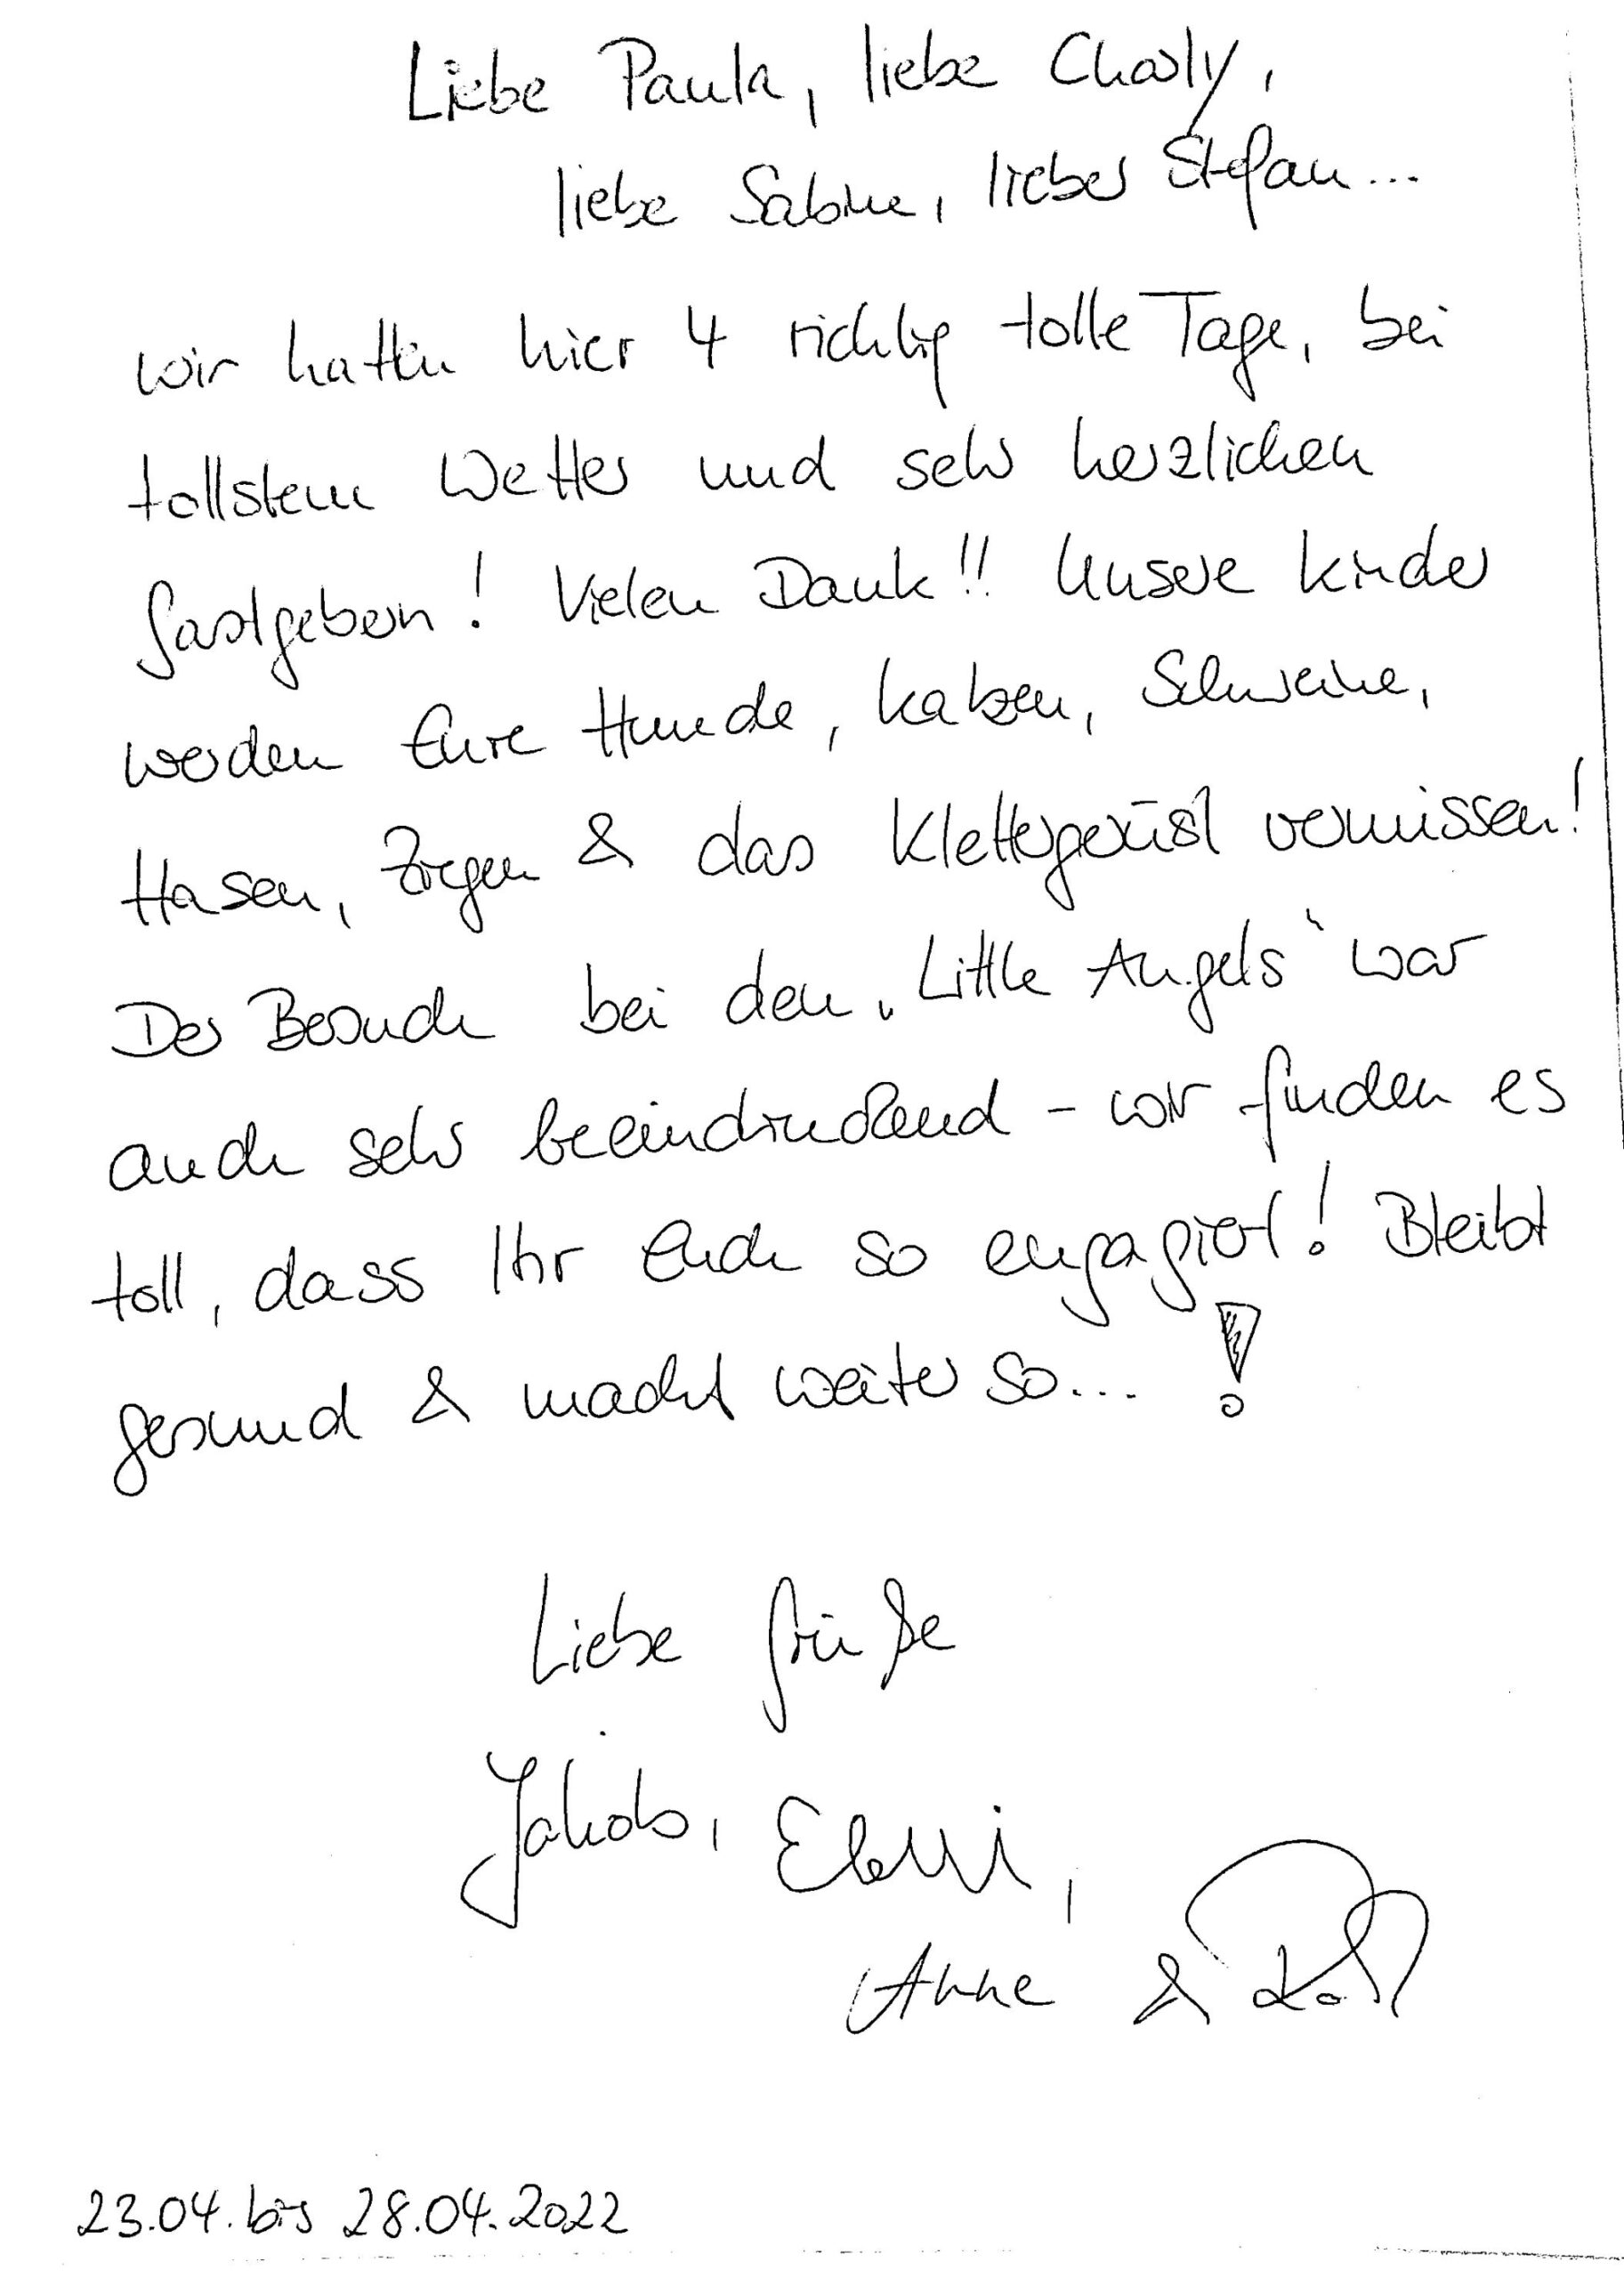 Liebe Paula, liebe Charly,
liebe Sabine, lieber Stefan...
wir hatten hier 4 richtig tolle Tage, bei
tollstem Wetter und sehr herzlichen
Gastgebern! Vielen Dank!! Unsere Kinder
werden Eure Hunde, Katzen, Schweine,
Hasen, Ziegen & das Klettergerüst vermissen!
Der Besuch bei den „Little Angels" war
auch sehr beeindruckend - wir finden es
toll, dass Ihr Euch so engagiert! Bleibt
gesund & macht weiter so... !
Liebe Grüße
Jakob,
Anne &
23.04. bis 28.04.2022